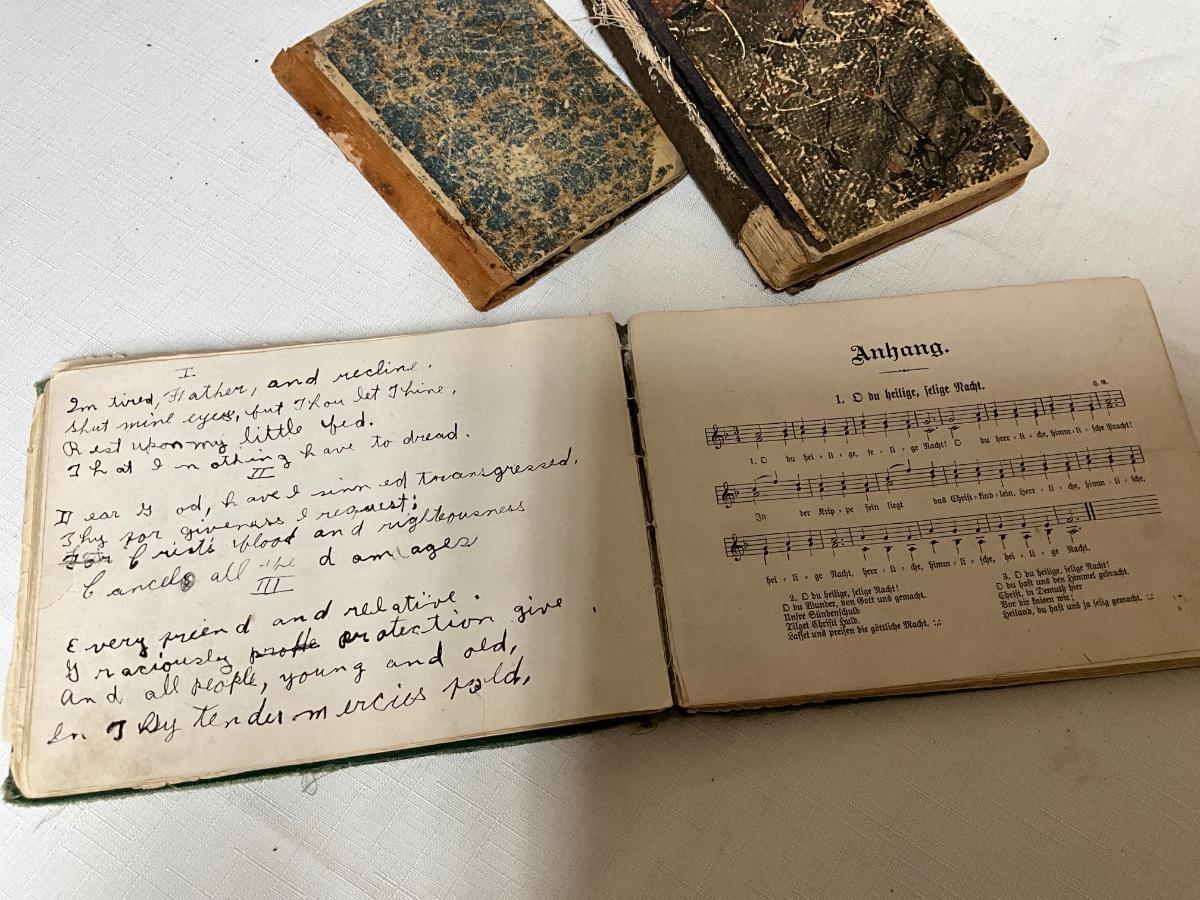 I
Im tired, Father, and recline.
Shut mine eyes, but Thou let Thine,
Rest upon my little bed.
That I nothing have to dread.
II
Dear God, have I sinned transgressed.
Thy forgiveness I request;
Crist's blood and righteousness
Cancels all the damages
III
Every friend and relative.
Graciously protection give.
And all people, young and old,
In Thy tender mercies fold,
Anhang.
1. O du heilige, selige Nacht.
1. O du hei-li-ge, se-li-ge Nacht! O du herr-li-che, himm-li-sche Pracht!
In der Krip-pe fein liegt das Christ-kind-lein. Herr-li-che, himm-li-sche,
hei-li-ge Nacht, herr-li-che, himm-li-sche, hei-li-ge Nacht.
2. O du heilige, selige Nacht!
O du Wunder, von Gott uns gemacht.
Unsre Sündenschuld
Tilget Christi Huld.
Lasset uns preisen die göttliche Macht. :,:
3. O du heilige, selige Nacht!
Du hast uns den Himmel gebracht.
Christ, in Demuth hier
Vor dir knieen wir;
Heiland, du hast uns ja selig gemacht. :,: